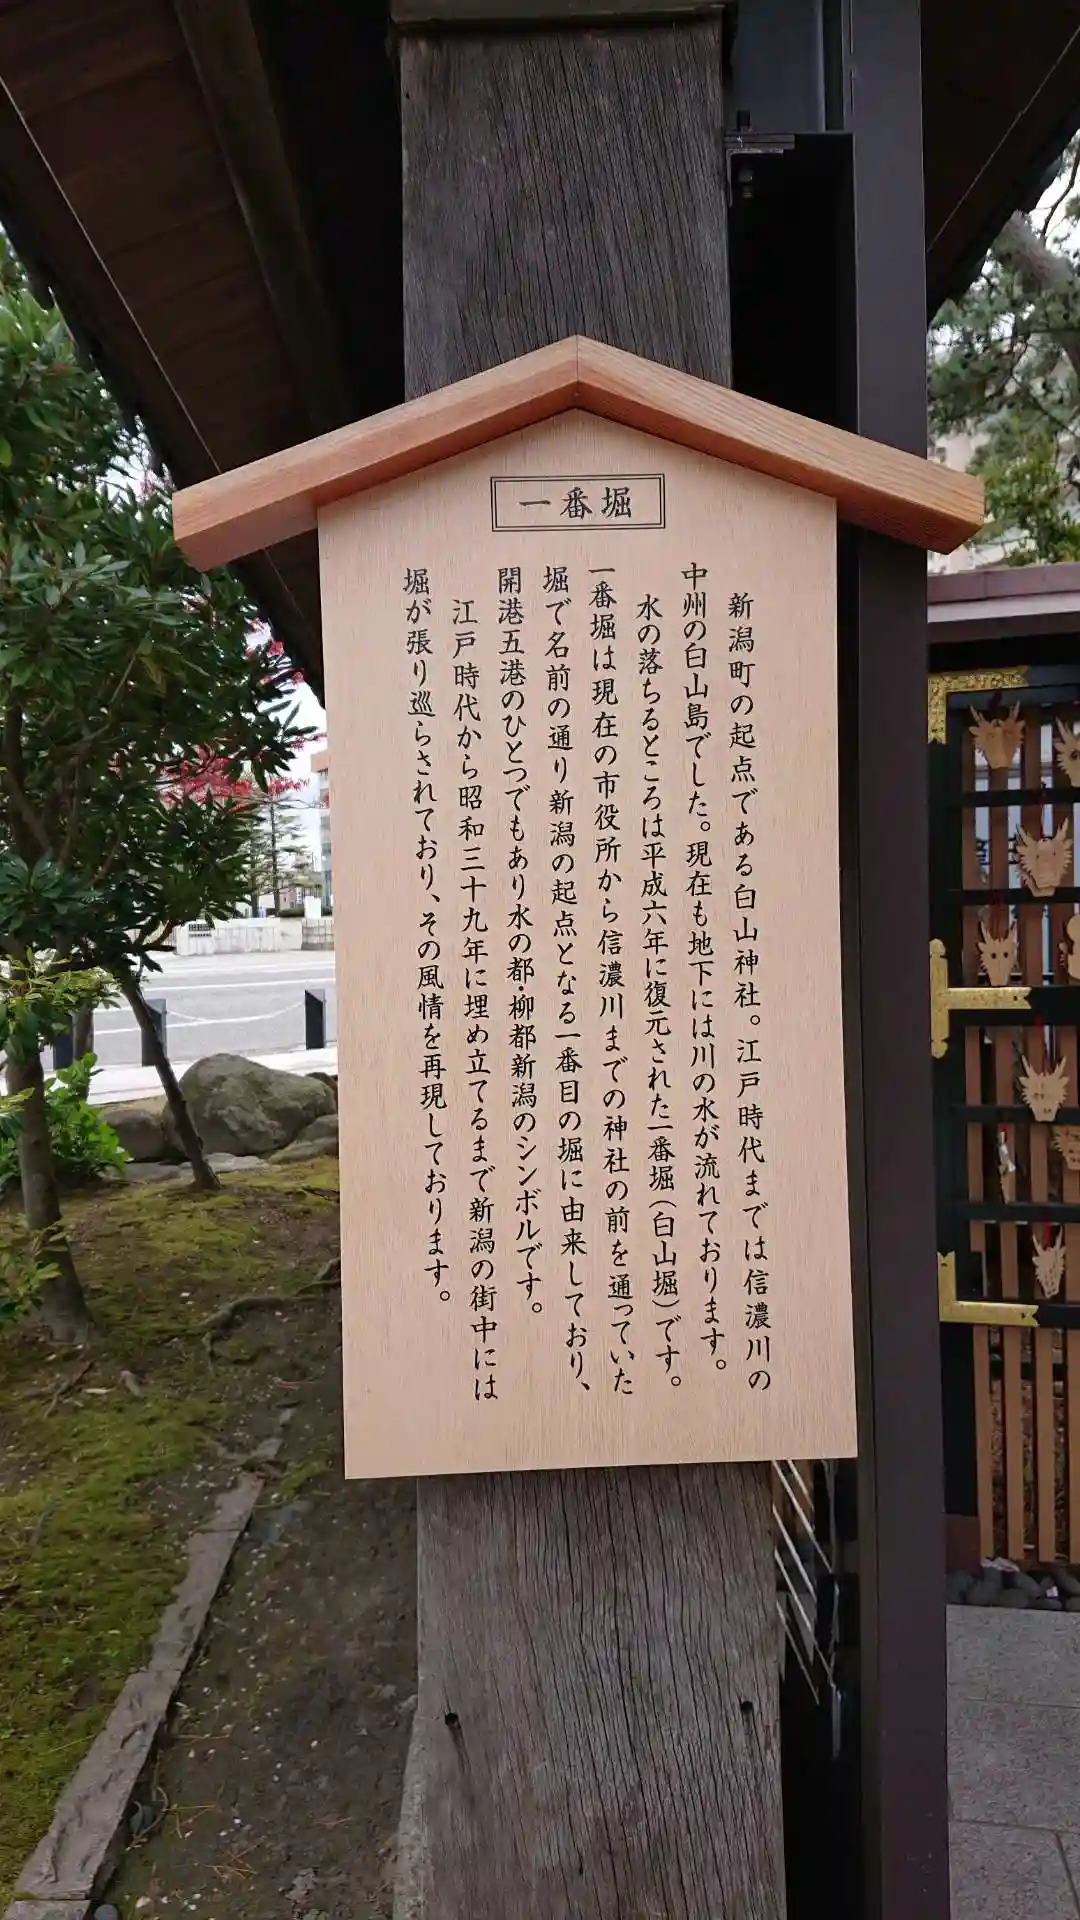 一番堀
新潟町の起点である白山神社。江戸時代までは信濃川の
中州の白山島でした。現在も地下には川の水が流れております。
水の落ちるところは平成六年に復元された一番堀（白山堀）です。
一番堀は現在の市役所から信濃川までの神社の前を通っていた
堀で名前の通り新潟の起点となる一番目の堀に由来しており、
開港五港のひとつでもあり水の都・柳都新潟のシンボルです。
江戸時代から昭和三十九年に埋め立てるまで新潟の街中には
堀が張り巡らされており、その風情を再現しております。